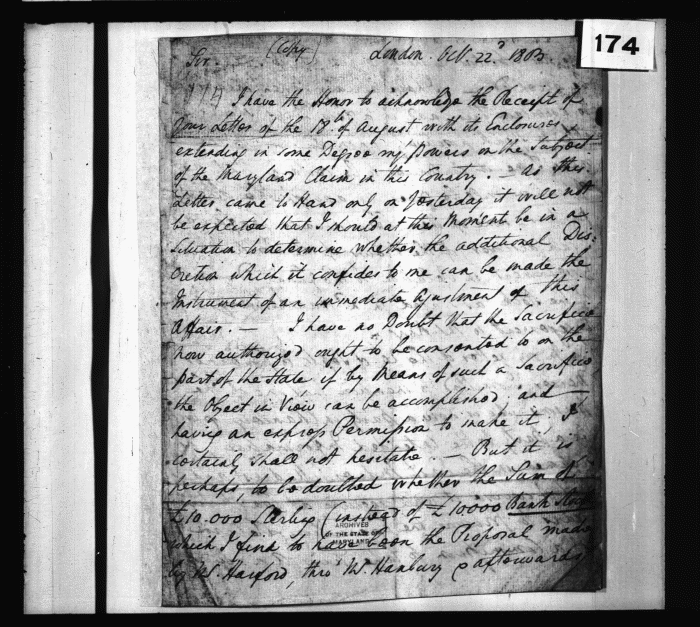 174
(Copy) London. Oct. 22d 1803
Sir.
174
I have the Honor to acknowledge the Receipt of
your Letter of the 18th of August with its Enclosures
extending in some Degree my Powers on the Subject
of the Maryland Claim in this Country. — As this
Letter came to Hand only on Yesterday it will not
be expected that I should at this Moment be in a
Situation to determine whether the additional Dis-
cretion which it confides to me can be made the
Instrument of an immediate Ajustment of this
Affair. — I have no Doubt that the Sacrifice
now authorized ought to be consented to on the
part of the State if by Means of such a Sacrifice
the Object in View can be accomplished; and
having an express Permission to make it, I
certainly shall not hesitate. — But it is
perhaps, to be doubted whether the Sum of
£10.000 Sterling (instead of £10000 Bank Stock
which I find to have been the Proposal made
by Mr. Harford, thro' Mr. Hanbury & afterwards
ARCHIVES
OF THE STATE OF
MARYLAND